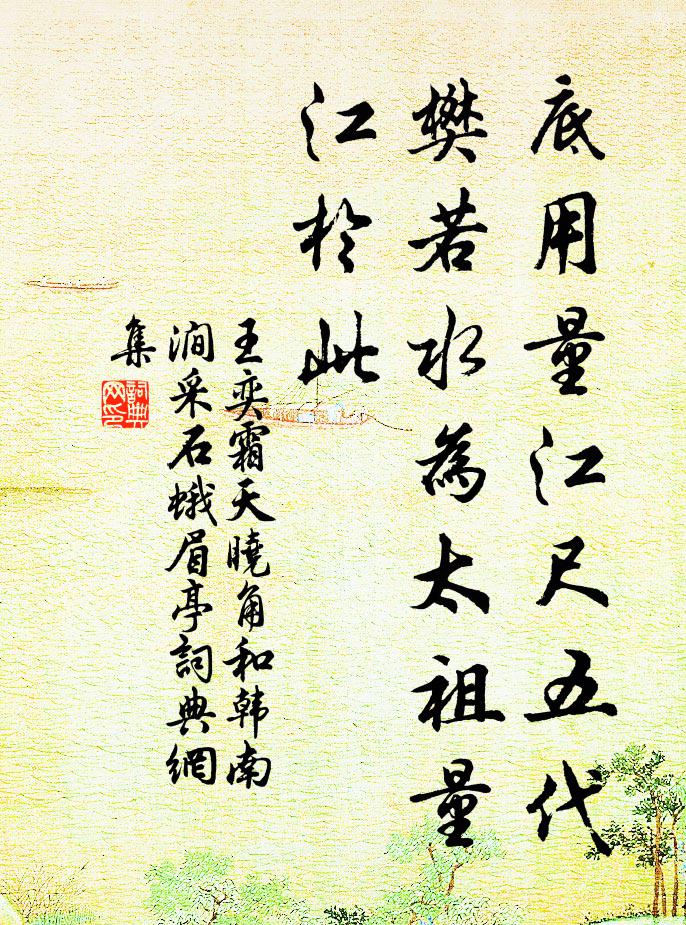 底用量江尺五代
樊若水為太祖量
江於此
王奕霜天曉角和韩南
涧采石蛾眉亭詞典網
集
詞典
网印